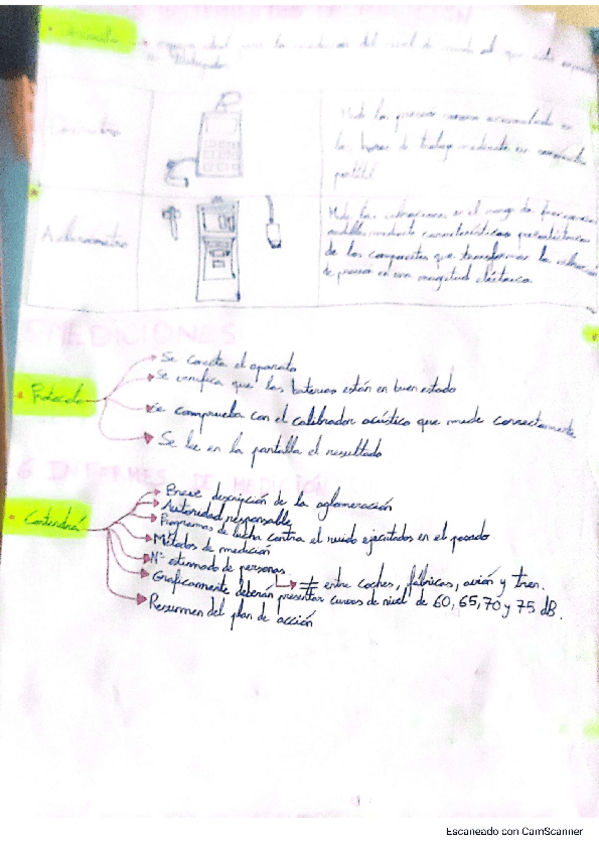 Dosímetro
Mide la presión sonora acumulada en
las horas de trabajo mediante un micrófono
portátil
Acelerómetro
Mide las vibraciones en el rango de frecuencias
audibles mediante características piezoeléctricas
de los componentes que transforman la vibración
de presión en una magnitud eléctrica.
MEDICIONES
• Protocolo
Se conecta el aparato
Se verifica que las baterías están en buen estado
Se comprueba con el calibrador acústico que mide correctamente
Se lee en la pantalla el resultado
6 INFORMES DE MEDICIÓN
• Contendrá
Breve descripción de la aglomeración
Autoridad responsable
Programas de lucha contra el ruido ejecutados en el pasado
Métodos de medición
Nº estimado de personas.
≠ entre coches, fábricas, avión y tren.
Gráficamente deberán presentar curvas de nivel de 60, 65, 70 y 75 dB.
Resumen del plan de acción
Escaneado con CamScanner